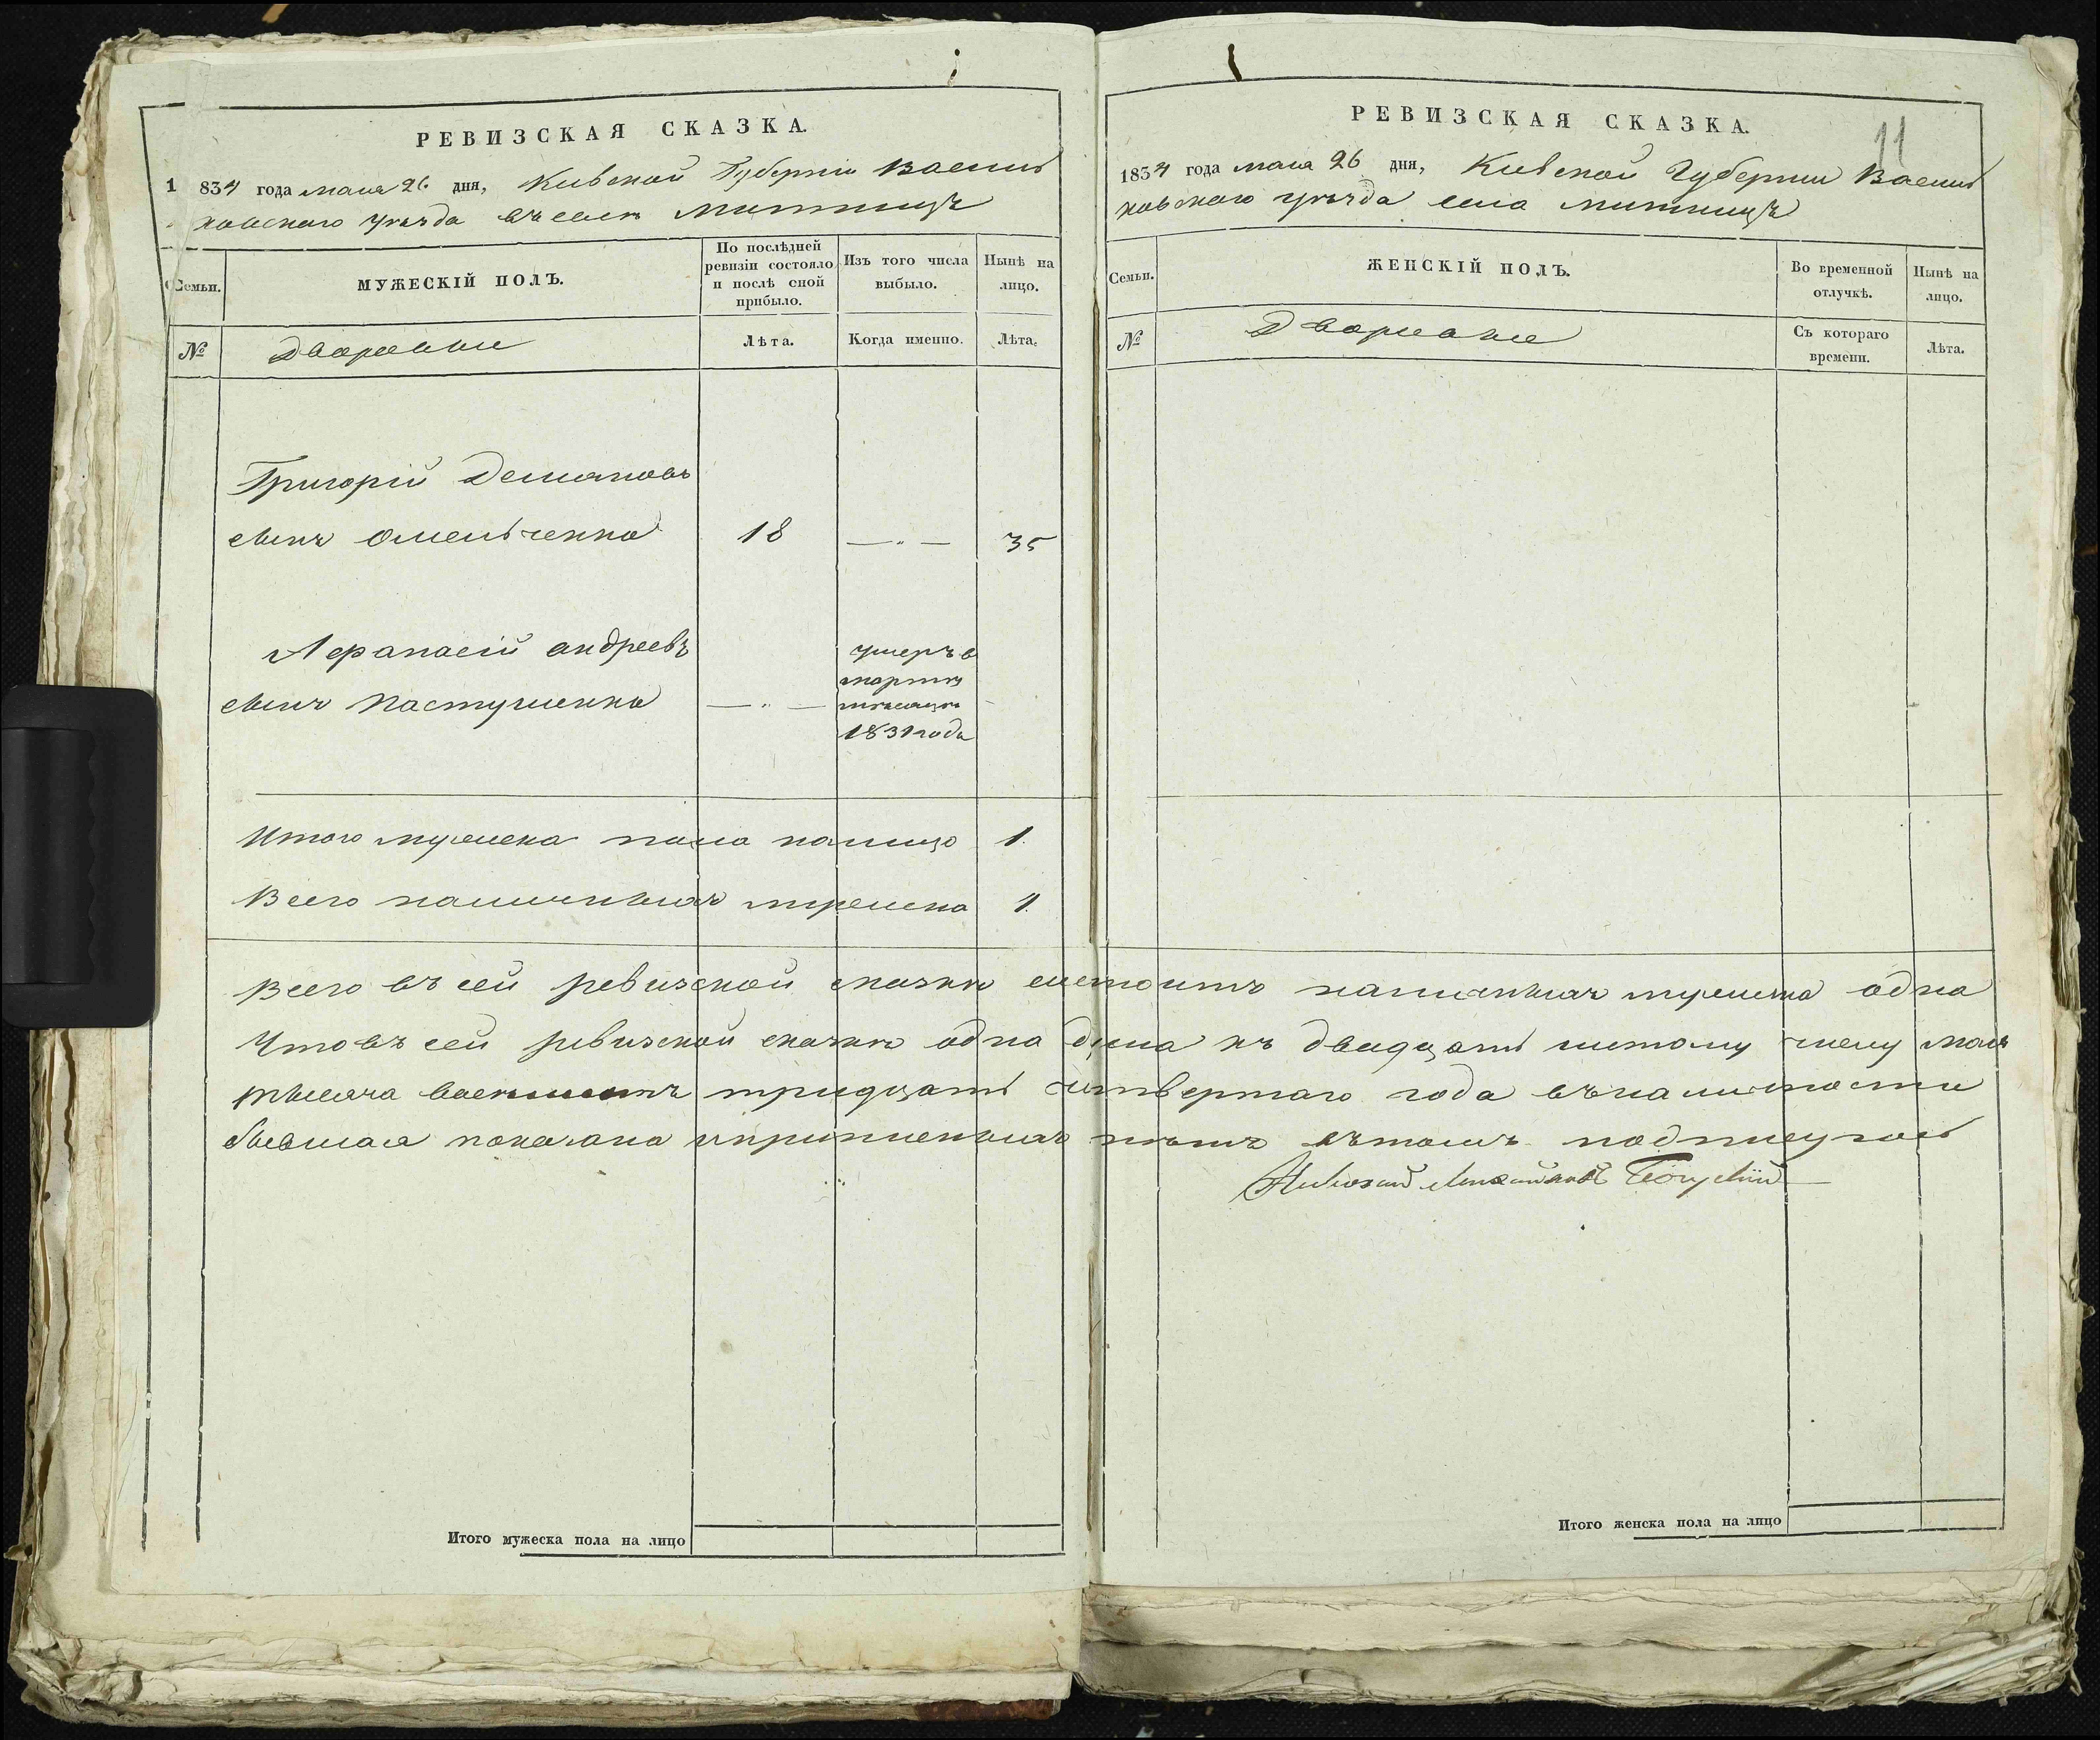 РЕВИЗСКАЯ СКАЗКА.
1834 года мая 26 дня, Киевской Губернии Василь
ковского уезда въ селе Митницъ
Семьи.
МУЖЕСКІЙ ПОЛЪ.
По послѣдней ревизіи состояло и послѣ оной прибыло.
Изъ того числа выбыло.
Нынѣ на лицо.
№
Дворовыи
Лѣта.
Когда именно.
Лѣта.
Григорій Демьяновъ
сынъ Омельченко 18 — „ — 35
Афанасій андреевъ
сынъ Пастушенко — „ —
умеръ в
мартѣ
месяцѣ
1831 года
Итого мужеска пола налицо 1.
Всего наличныхъ мужеска 1.
Всего въ сей ревизской сказкѣ состоитъ наличныхъ мужеска одна
Что въ сей ревизской сказкѣ одна душа къ двадцать шетому числу мая
тысяча восемъсотъ тридцать четвертаго года въ наличности
бывшая показана и прописныхъ нѣтъ въ томъ подписуюсь
Итого мужеска пола на лицо
РЕВИЗСКАЯ СКАЗКА.
11
1834 года мая 26 дня, Киевской Губернии Василь
ковского уезда села Митницъ
Семьи.
ЖЕНСКІЙ ПОЛЪ.
Во временной отлучкѣ.
Нынѣ на лицо.
№
Дворовыи
Съ котораго времени.
Лѣта.
Итого женска пола на лицо